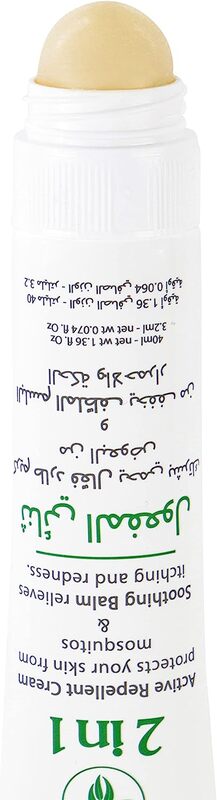 2 in 1
Active Repellent Cream
protects your skin from
mosquitos
&
Soothing Balm relieves
itching and redness.
ثنائي المفعول
كريم طارد فعّال يحمي بشرتك
من البعوض
و
البلسم الملطّف يخفف من
الحكة والاحمرار
40ml - net wt 1.36 fl. Oz
3.2ml - net wt 0.074 fl. Oz
40 ملليتر - الوزن الصافي 1.36 أوقية
3.2 ملليتر - الوزن الصافي 0.064 أوقية